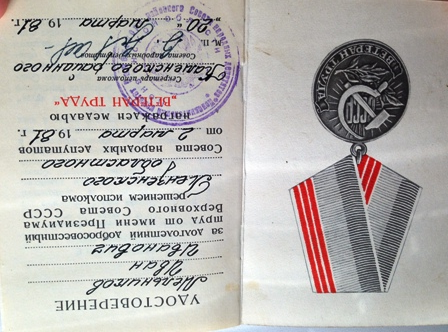 УДОСТОВЕРЕНИЕ
Мельников
Иван
Иванович
за долголетний добросовестный
труд от имени Президиума
Верховного Совета СССР
решением исполкома
Пензенского
областного
Совета народных депутатов
от 2 марта 1981 г.
награжден медалью
"ВЕТЕРАН ТРУДА"
Секретарь исполкома
Совета народных депутатов
М. П.
марта 1981 г.
ВЕТЕРАН ТРУДА
СССР